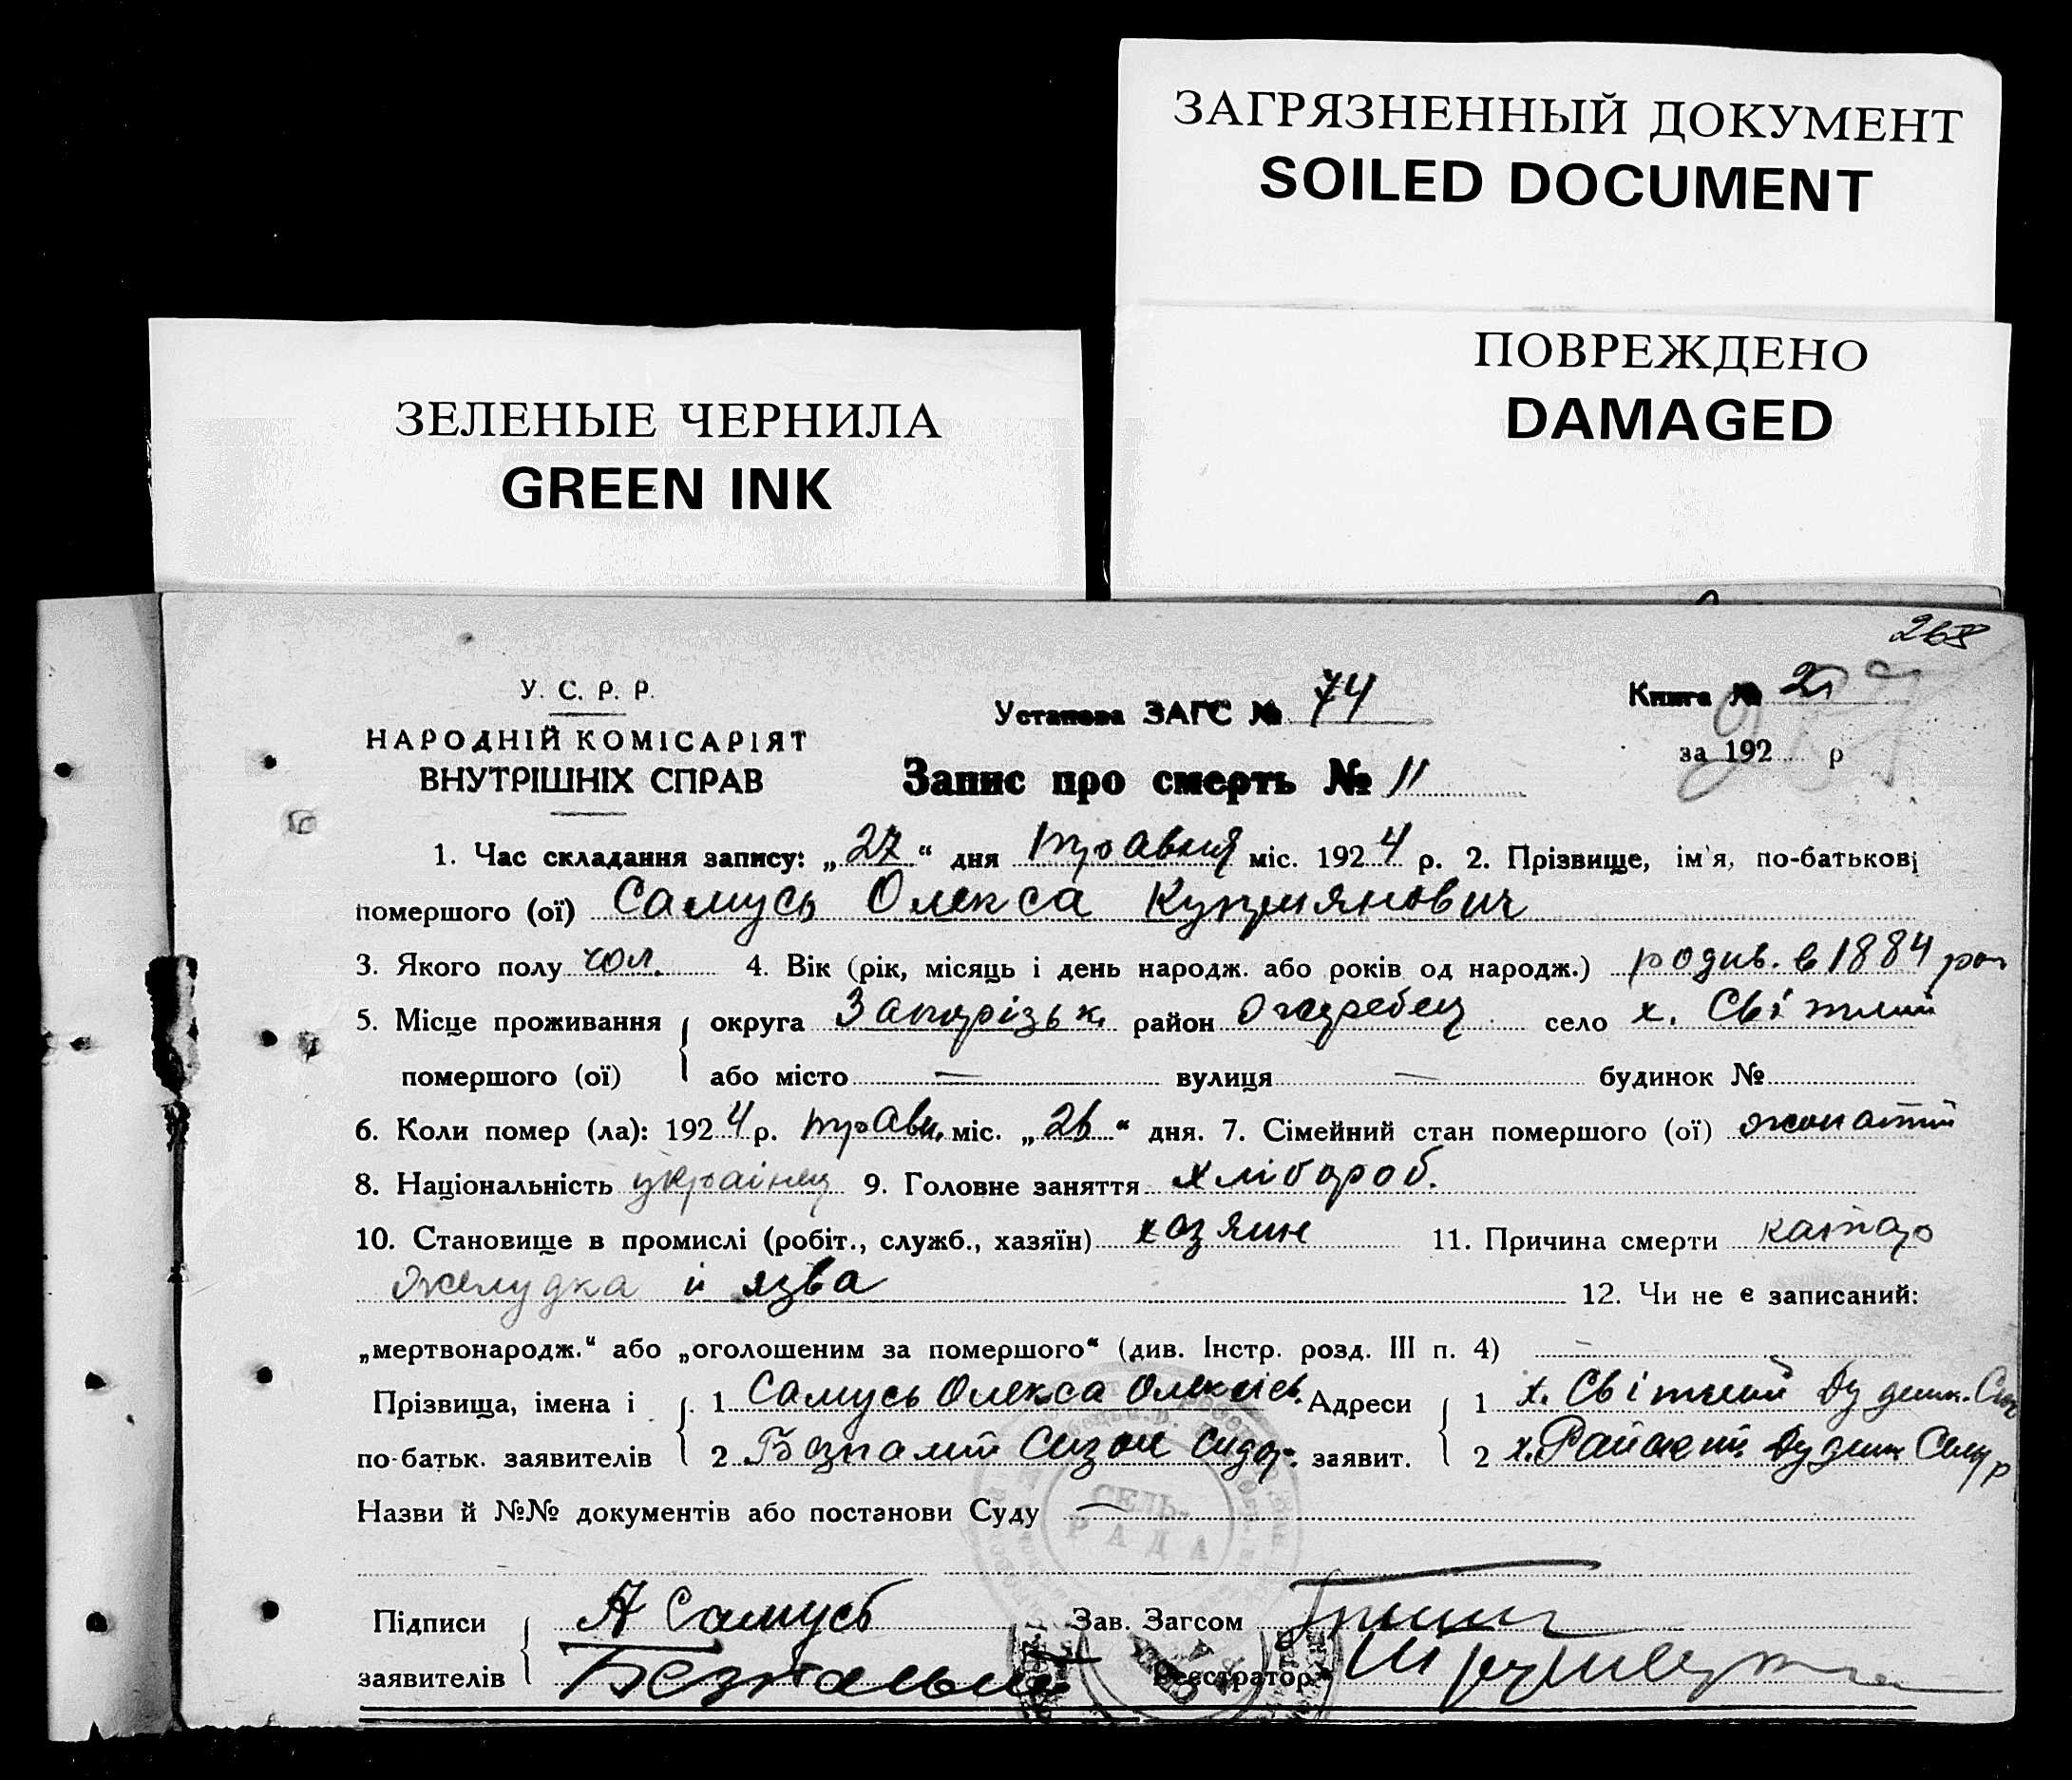 ЗАГРЯЗНЕННЫЙ ДОКУМЕНТ
SOILED DOCUMENT
ПОВРЕЖДЕНО
DAMAGED
ЗЕЛЕНЫЕ ЧЕРНИЛА
GREEN INK
268
У. С. Р. Р.
НАРОДНІЙ КОМІСАРІЯТ
ВНУТРІШНІХ СПРАВ
Установа ЗАГС № 74
Книга № 2
за 192 р
Запис про смерть № 11
1. Час складання запису: „27“ дня травня міс. 1924 р. 2. Прізвище, ім'я, по-батькові
помершого (ої) Самусь Олекса Купріянович
3. Якого полу чол. 4. Вік (рік, місяць і день народж. або років од народж.) родив. в 1884 році
5. Місце проживання округа Запорізьк. район село х. Світлий
помершого (ої) або місто — вулиця — будинок №
6. Коли помер (ла): 1924 р. травн. міс. „26“ дня. 7. Сімейний стан помершого (ої) жонатий
8. Національність украінец 9. Головне заняття хлібороб.
10. Становище в промислі (робіт., служб., хазяїн) хозяин 11. Причина смерти катар
желудка и язва 12. Чи не є записаний:
„мертвонародж.“ або „оголошеним за помершого“ (див. Інстр. розд. III п. 4) —
Прізвища, імена і 1 Самусь Олекса Олексієв. Адреси 1 х. Світлий
по-батьк. заявителів 2 Сизон Сидор. заявит. 2 х. Райский
Назви й №№ документів або постанови Суду —
СЕЛЬ-
РАДА
Підписи А Самусь Зав. Загсом
заявителів Реєстратор